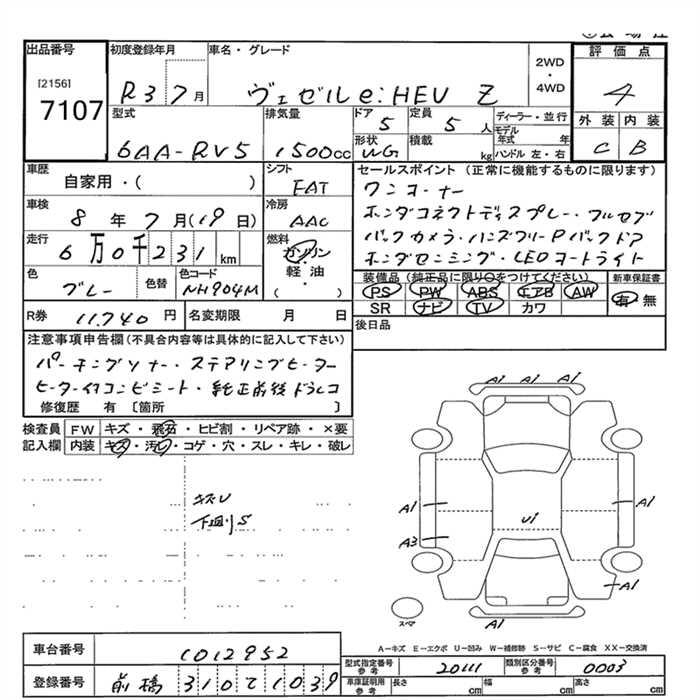 出品番号
[2156]
7107
初度登録年月
R3 7月
車名・グレード
ヴェゼル e:HEV Z
2WD
・
4WD
評価点
4
外装 内装
C B
型式
6AA-RV5
排気量
1500cc
ドア
5
形状
WG
定員
5人
積載
kg
ディーラー・並行
モデル年式 年
ハンドル 左・右
車歴
自家用・( )
シフト
FAT
車検
8年7月(19日)
冷房
AAC
走行
6万0千231km
燃料
ガソリン
・
軽油
( ・ )
色
グレー
色替
色コード
NH904M
R券
11,740円
名変期限 月 日
セールスポイント (正常に機能するものに限ります)
ワンオーナー
ホンダコネクトディスプレー・フルセグ
バックカメラ・ハンズフリーPバックドア
ホンダセンシング・LEDオートライト
装備品(純正品に限り○をつけてください)
PS PW ABS エアB AW
SR ナビ TV カワ
新車保証書
有 無
後日品
注意事項申告欄(不具合内容等は具体的に記入して下さい)
パーキングソナー・ステアリングヒーター
ヒーター付コンビシート・純正前後ドラレコ
修復歴 有 〔箇所 〕
検査員記入欄
FW キズ・飛石・ヒビ割・リペア跡・×要
内装 キズ・汚れ・コゲ・穴・スレ・キレ・破レ
キズU
下廻りS
A1 A1 A1
A1 A1
A3
U1
A1
A1
スペア
A-キズ E-エクボ U-凹み W-補修跡 S-サビ C-腐食 XX-交換済
車台番号
1012952
登録番号
前橋 310 て 1039
型式指定番号
参考
20111
類別区分番号
参考
0003
車庫証明用
参考
長さ cm 幅 cm 高さ cm